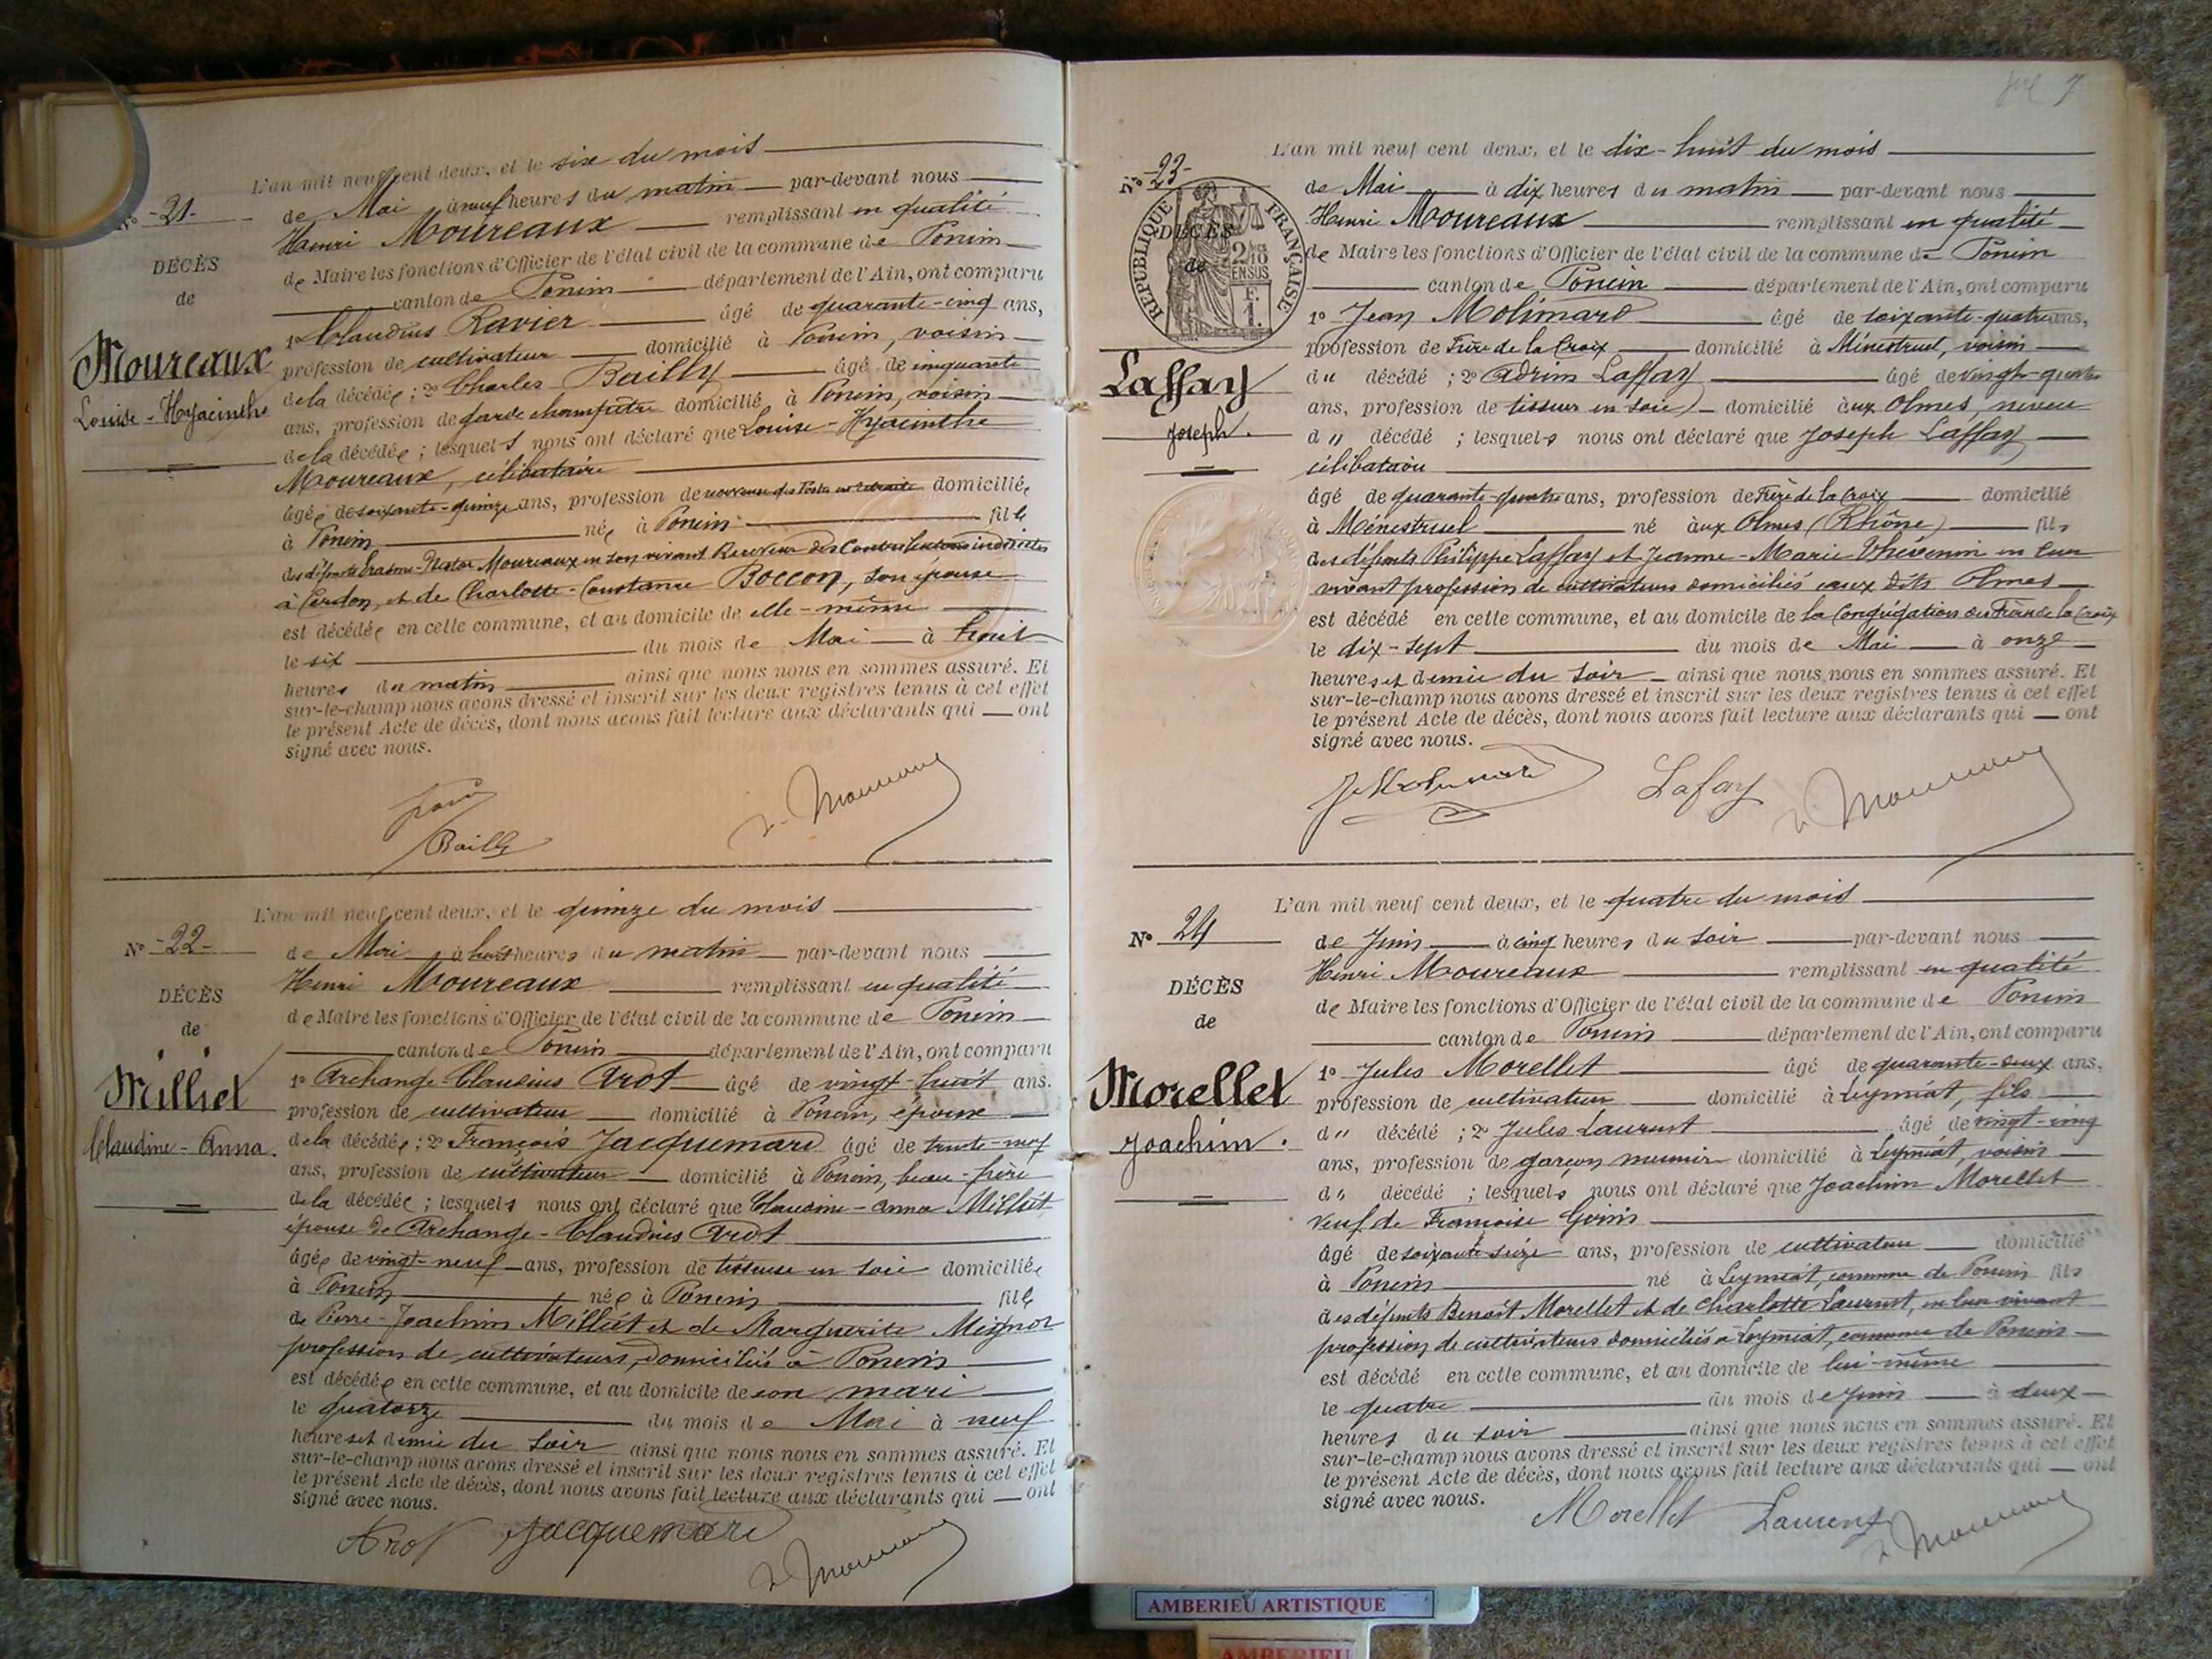 N° -21-
DÉCÈS
de
Moureaux
Louise-Hyacinthe
L'an mil neuf cent deux, et le six du mois
de Mai à neuf heures du matin par-devant nous
Henri Moureaux remplissant en qualité
de Maire les fonctions d'Officier de l'état civil de la commune de Poncin
canton de Poncin département de l'Ain, ont comparu
1° Claudius Ravier âgé de quarante-cinq ans,
profession de cultivateur domicilié à Poncin, voisin
de la décédée ; 2° Charles Bailly âgé de cinquante
ans, profession de garde champêtre domicilié à Poncin, voisin
de la décédée ; lesquels nous ont déclaré que Louise-Hyacinthe
Moureaux, célibataire
âgée de soixante-quinze ans, profession de receveuse des Postes en retraite domiciliée
à Poncin née à Poncin fille
des défunts Moureaux en son vivant Receveur des Contributions indirectes
à Cerdon, et de Charlotte-Constance Boccon, son épouse
est décédée en cette commune, et au domicile de elle-même
le six du mois de Mai à huit
heures du matin ainsi que nous nous en sommes assuré. Et
sur-le-champ nous avons dressé et inscrit sur les deux registres tenus à cet effet
le présent Acte de décès, dont nous avons fait lecture aux déclarants qui ont
signé avec nous.
Bailly
N° -22-
DÉCÈS
de
Milliet
Claudine-Anna.
L'an mil neuf cent deux, et le quinze du mois
de Mai à huit heures du matin par-devant nous
Henri Moureaux remplissant en qualité
de Maire les fonctions d'Officier de l'état civil de la commune de Poncin
canton de Poncin département de l'Ain, ont comparu
1° Archange-Claudius Arot âgé de vingt-huit ans.
profession de cultivateur domicilié à Poncin, époux
de la décédée ; 2° François Jacquemard âgé de trente-neuf
ans, profession de cultivateur domicilié à Poncin, beau-frère
de la décédée ; lesquels nous ont déclaré que Claudine-Anna Milliet
épouse de Archange-Claudius Arot
âgée de vingt-neuf ans, profession de tisseuse en soie domiciliée
à Poncin née à Poncin fille
de Pierre-Joachim Milliet et de Marguerite Mignot
profession de cultivateurs, domiciliés à Poncin
est décédée en cette commune, et au domicile de son mari
le quatorze du mois de Mai à neuf
heures et demie du soir ainsi que nous nous en sommes assuré. Et
sur-le-champ nous avons dressé et inscrit sur les deux registres tenus à cet effet
le présent Acte de décès, dont nous avons fait lecture aux déclarants qui ont
signé avec nous.
Arot Jacquemard
7
N° -23-
RÉPUBLIQUE FRANÇAISE
DÉCÈS
de
Laffay
Joseph.
L'an mil neuf cent deux, et le dix-huit du mois
de Mai à dix heures du matin par-devant nous
Henri Moureaux remplissant en qualité
de Maire les fonctions d'Officier de l'état civil de la commune de Poncin
canton de Poncin département de l'Ain, ont comparu
1° Jean Molimard âgé de soixante-quatre ans,
profession de Frère de la Croix domicilié à Ménestruel, voisin
du décédé ; 2° Adrien Laffay âgé de vingt-quatre
ans, profession de tisseur en soie domicilié aux Olmes, neveu
du décédé ; lesquels nous ont déclaré que Joseph Laffay
célibataire
âgé de quarante-quatre ans, profession de Frère de la Croix domicilié
à Ménestruel né aux Olmes (Rhône) fils
des défunts Philippe Laffay et Jeanne-Marie Thévenin en leur
vivant profession de cultivateurs domiciliés aux dits Olmes
est décédé en cette commune, et au domicile de la Congrégation des Frères de la Croix
le dix-sept du mois de Mai à onze
heures et demie du soir ainsi que nous nous en sommes assuré. Et
sur-le-champ nous avons dressé et inscrit sur les deux registres tenus à cet effet
le présent Acte de décès, dont nous avons fait lecture aux déclarants qui ont
signé avec nous.
J Molimard Lafay
N° 24
DÉCÈS
de
Morellet
Joachim.
L'an mil neuf cent deux, et le quatre du mois
de Juin à cinq heures du soir par-devant nous
Henri Moureaux remplissant en qualité
de Maire les fonctions d'Officier de l'état civil de la commune de Poncin
canton de Poncin département de l'Ain, ont comparu
1° Jules Morellet âgé de quarante-deux ans,
profession de cultivateur domicilié à Leymiat, fils
du décédé ; 2° Jules Laurent âgé de vingt-cinq
ans, profession de garçon meunier domicilié à Leymiat, voisin
du décédé ; lesquels nous ont déclaré que Joachim Morellet
veuf de Françoise
âgé de soixante seize ans, profession de cultivateur domicilié
à Poncin né à Leymiat, commune de Poncin fils
des défunts Benoît Morellet et de Charlotte Laurent, en leur vivant
profession de cultivateurs domiciliés à Leymiat, commune de Poncin
est décédé en cette commune, et au domicile de lui-même
le quatre du mois de Juin à deux
heures du soir ainsi que nous nous en sommes assuré. Et
sur-le-champ nous avons dressé et inscrit sur les deux registres tenus à cet effet
le présent Acte de décès, dont nous avons fait lecture aux déclarants qui ont
signé avec nous.
Morellet Laurent
AMBERIEU ARTISTIQUE
AMBERIEU